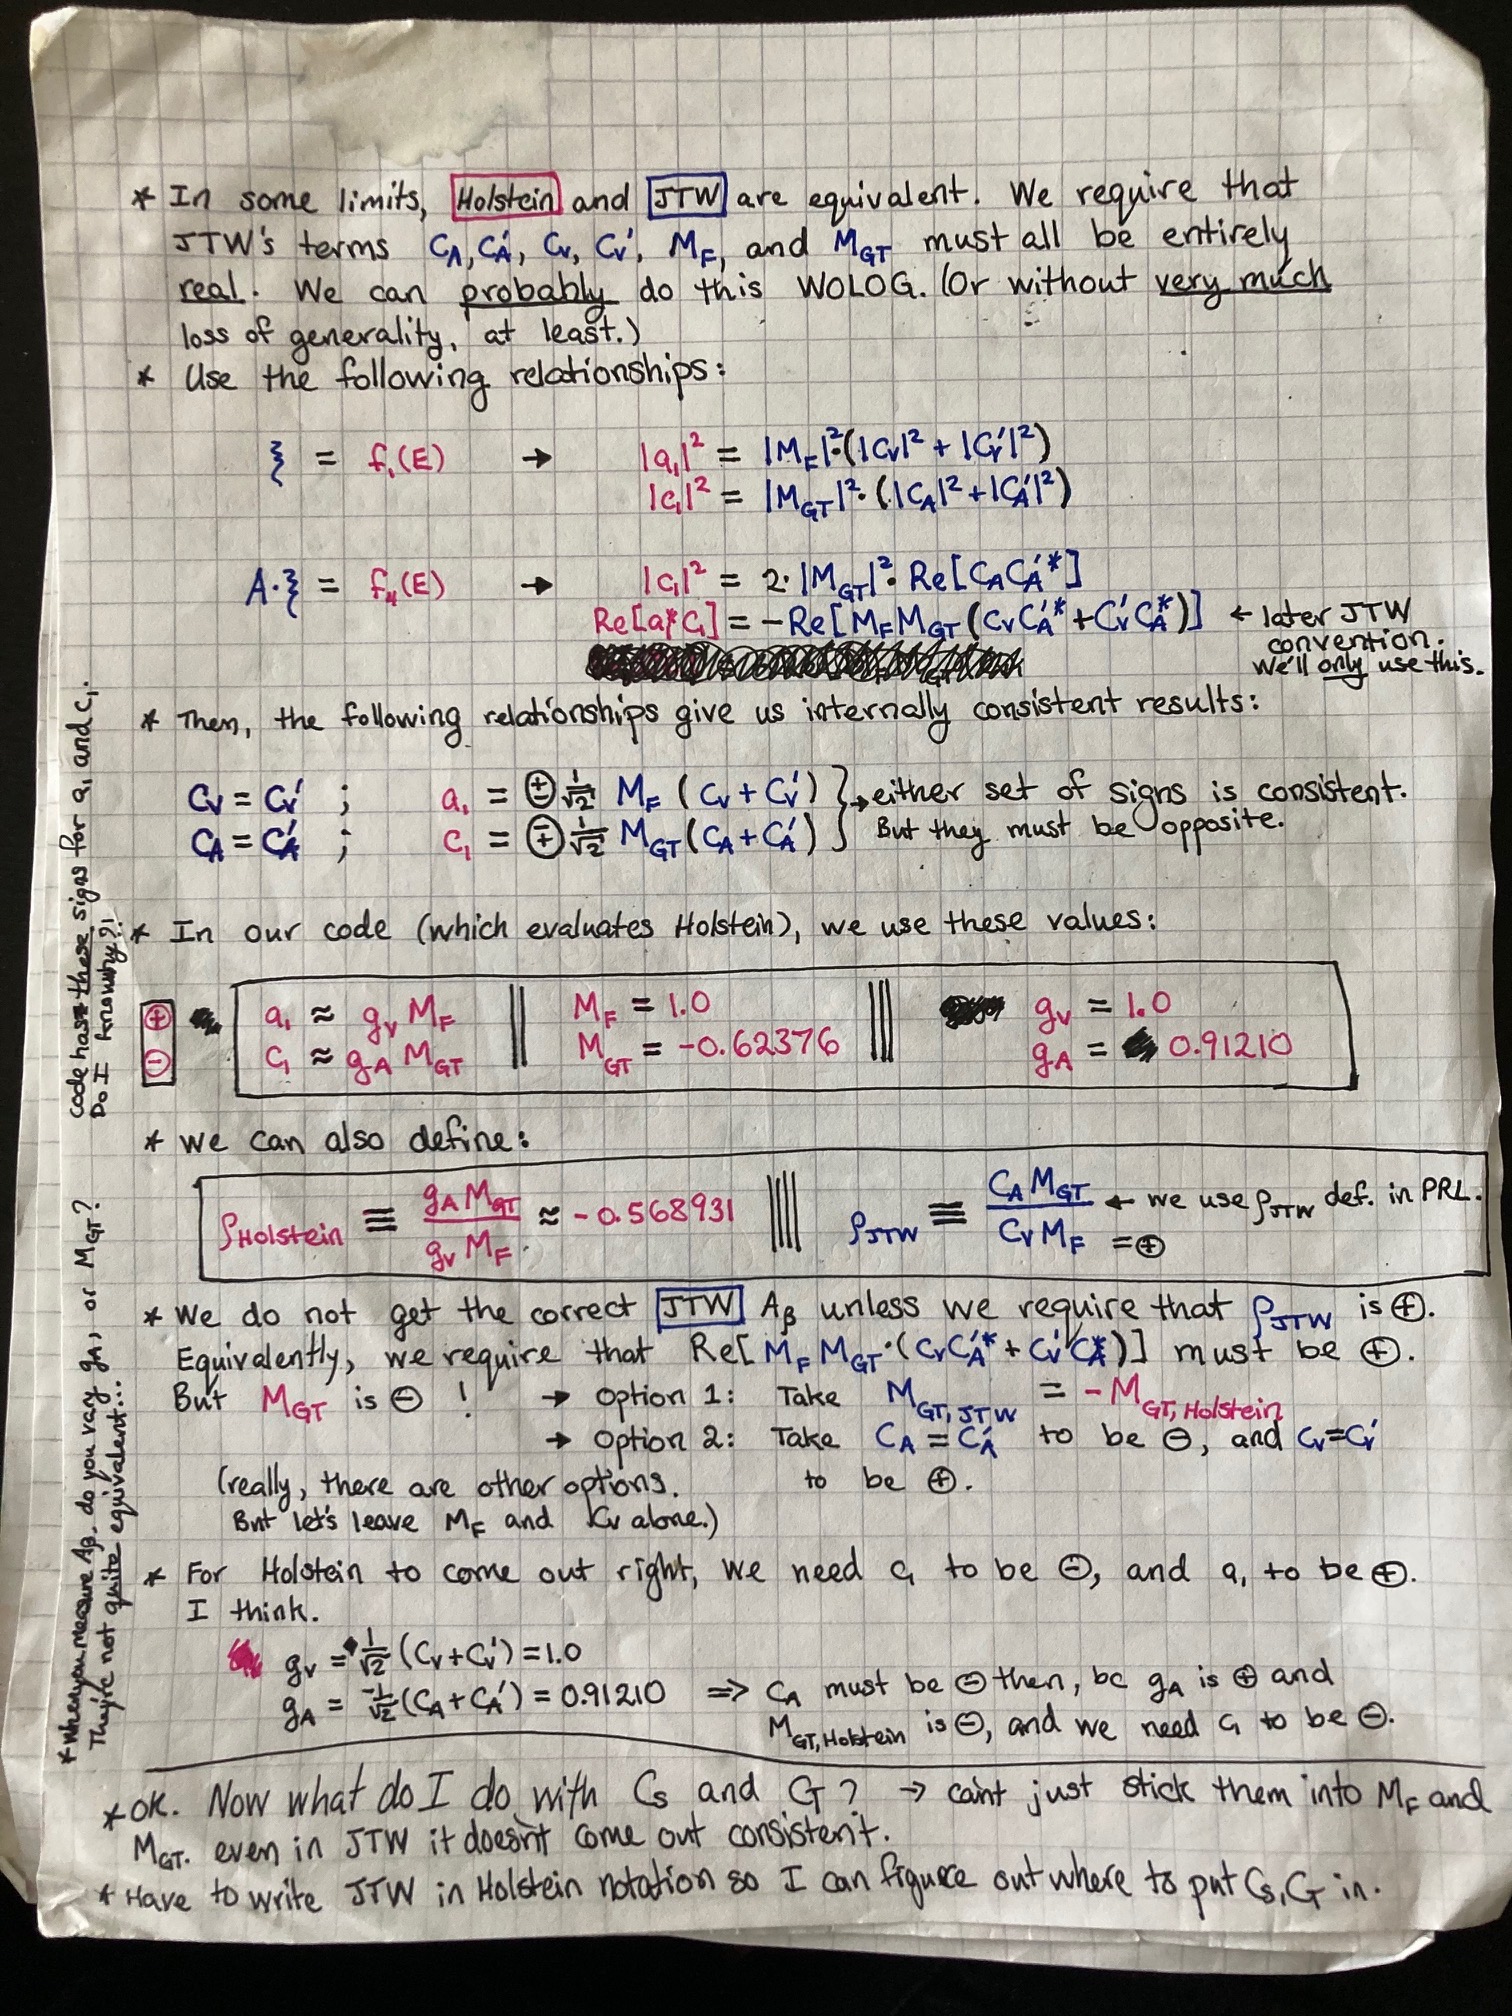 * In some limits, Holstein and JTW are equivalent. We require that
JTW's terms C_A, C_A', C_V, C_V', M_F, and M_GT must all be entirely
real. We can probably do this WOLOG. (Or without very much
loss of generality, at least.)
* Use the following relationships:
ξ = f₁(E) → |a₁|² = |M_F|²·(|C_V|² + |C_V'|²)
|c₁|² = |M_GT|²·(|C_A|² + |C_A'|²)
A·ξ = f₄(E) → |c₁|² = 2·|M_GT|²·Re[C_A C_A'*]
Re[a₁* c₁] = -Re[M_F M_GT (C_V C_A'* + C_V' C_A*)] ← later JTW
convention.
We'll only use this.
* Then, the following relationships give us internally consistent results:
C_V = C_V' ; a₁ = ± 1/√2 M_F (C_V + C_V') } → either set of signs is consistent.
C_A = C_A' ; c₁ = ∓ 1/√2 M_GT (C_A + C_A') } But they must be opposite.
* In our code (which evaluates Holstein), we use these values:
⊕ a₁ ≈ g_V M_F || M_F = 1.0 ||| g_V = 1.0
⊖ c₁ ≈ g_A M_GT || M_GT = -0.62376 ||| g_A = 0.91210
code has these signs for a₁ and c₁.
Do I know why?!
* We can also define:
ρ_Holstein ≡ g_A M_GT / g_V M_F ≈ -0.568931 |||| ρ_JTW ≡ C_A M_GT / C_V M_F ← we use ρ_JTW def. in PRL.
= ⊕
* We do not get the correct JTW A_β unless we require that ρ_JTW is ⊕.
Equivalently, we require that Re[M_F M_GT·(C_V C_A'* + C_V' C_A*)] must be ⊕.
But M_GT is ⊖ ! → Option 1: Take M_GT,JTW = -M_GT,Holstein
→ Option 2: Take C_A = C_A' to be ⊖, and C_V = C_V'
to be ⊕.
(really, there are other options.
But let's leave M_F and C_V alone.)
* For Holstein to come out right, we need c₁ to be ⊖, and a₁ to be ⊕.
I think.
g_V = 1/√2 (C_V + C_V') = 1.0
g_A = -1/√2 (C_A + C_A') = 0.91210 ⇒ C_A must be ⊖ then, bc g_A is ⊕ and
M_GT,Holstein is ⊖, and we need c₁ to be ⊖.
* When you measure A_β, do you vary g_A, or M_GT?
They're not quite equivalent...
* OK. Now what do I do with C_S and C_T? → can't just stick them into M_F and
M_GT. even in JTW it doesn't come out consistent.
* Have to write JTW in Holstein notation so I can figure out where to put C_S, C_T in.